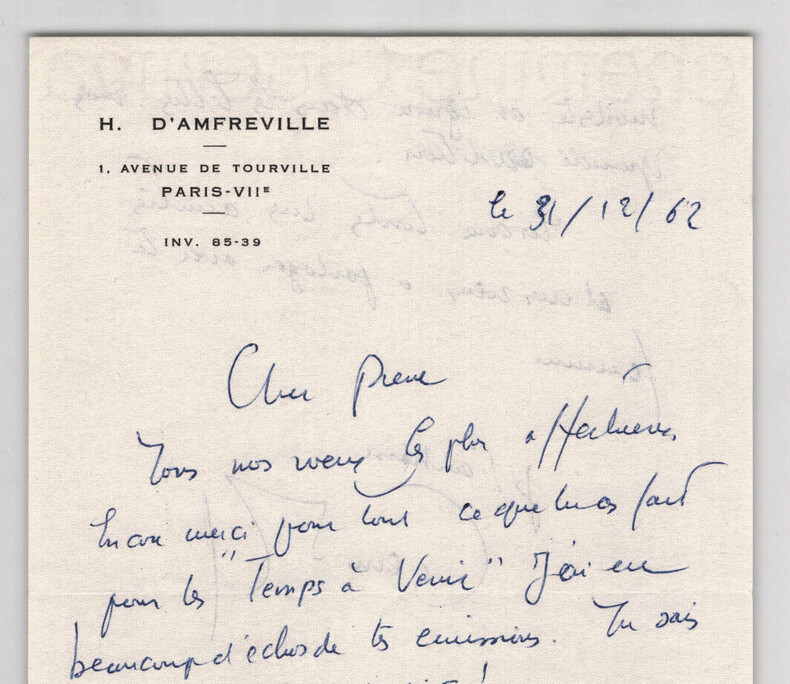 H. D'AMFREVILLE
1, AVENUE DE TOURVILLE
PARIS-VIIE
INV. 85-39
le 31/12/62
Cher Pierre
Tous nos voeux les plus affectueux
Encore merci pour tout ce que tu as fait
pour les "Temps à Venir" J'ai eu
beaucoup d'échos de tes emissions. Tu sais